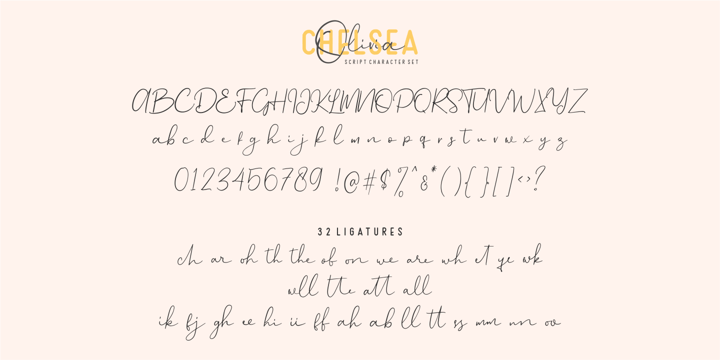 CHELSEA
Olivia
SCRIPT CHARACTER SET
ABCDEFGHIJKLMNOPQRSTUVWXYZ
a b c d e f g h i j k l m n o p q r s t u r w x y z
0123456789 !@#$%^&*(){}[]<>?
32 LIGATURES
ch ar oh th the of on we are wh et ye wk
will tte att all
ik fj gh ee hi ii ff ah ab ll tt ss mm nn oo